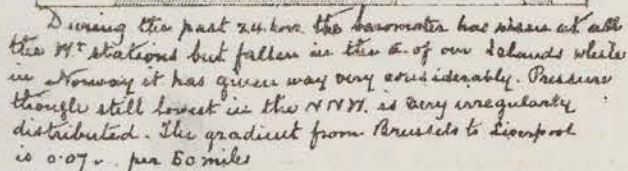 During the past 24 hours the barometer has risen at all
the Wn stations but fallen in the E. of our Islands while
in Norway it has given way very considerably. Pressure
though still lowest in the NNW. is very irregularly
distributed. The gradient from Brussels to Liverpool
is 0.07 per 50 miles